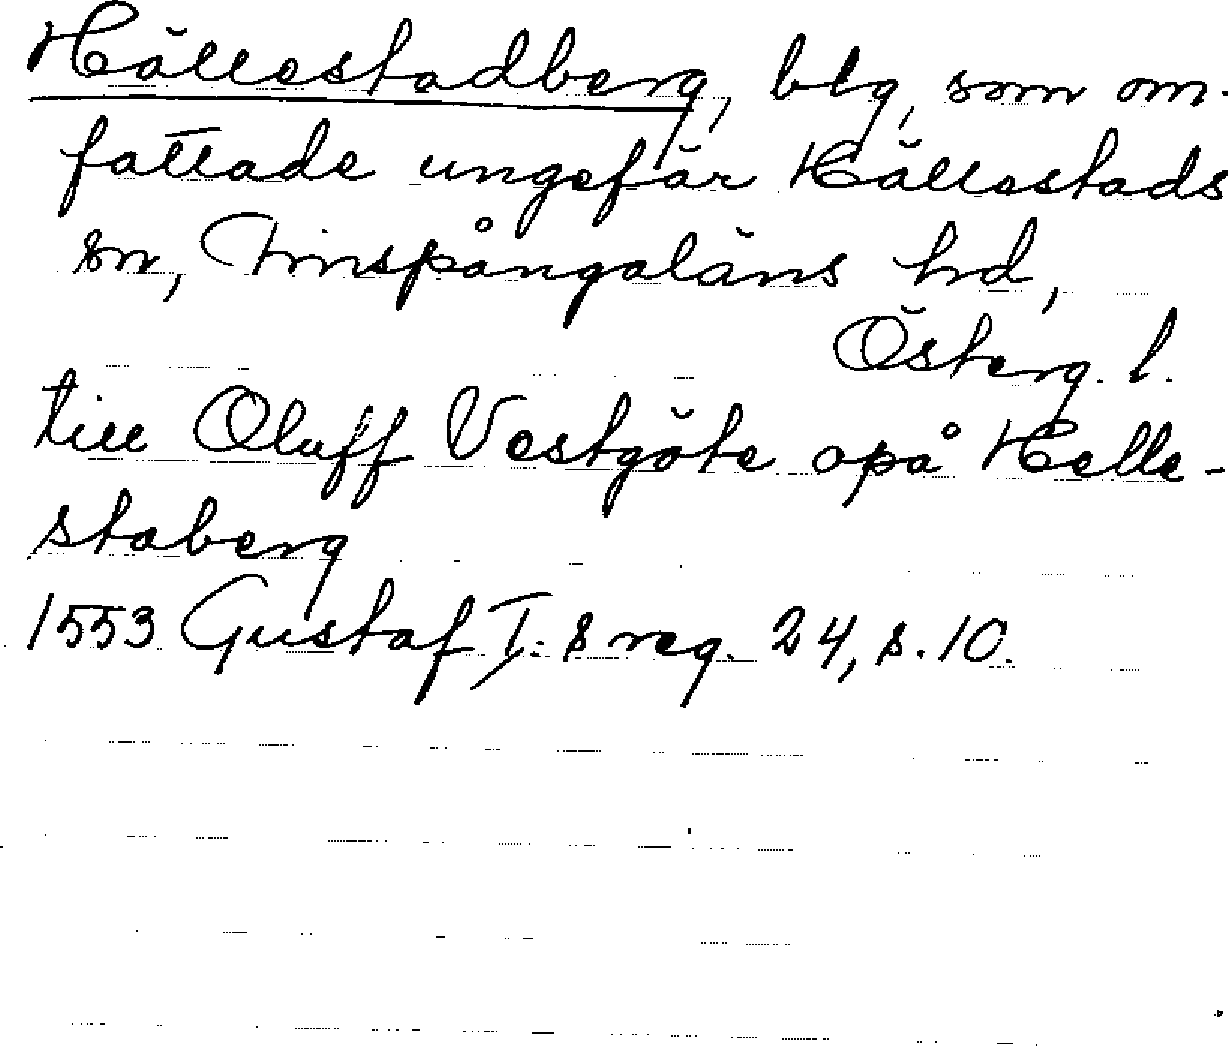 Hällestadberg, blg, som om-
fattade ungefär Hällestads
sn, Finspångaläns hd,
Österg. l.
till Oluff Vestgöte opå Helle-
staberg
1553 Gustaf I:s reg. 24, s. 10.